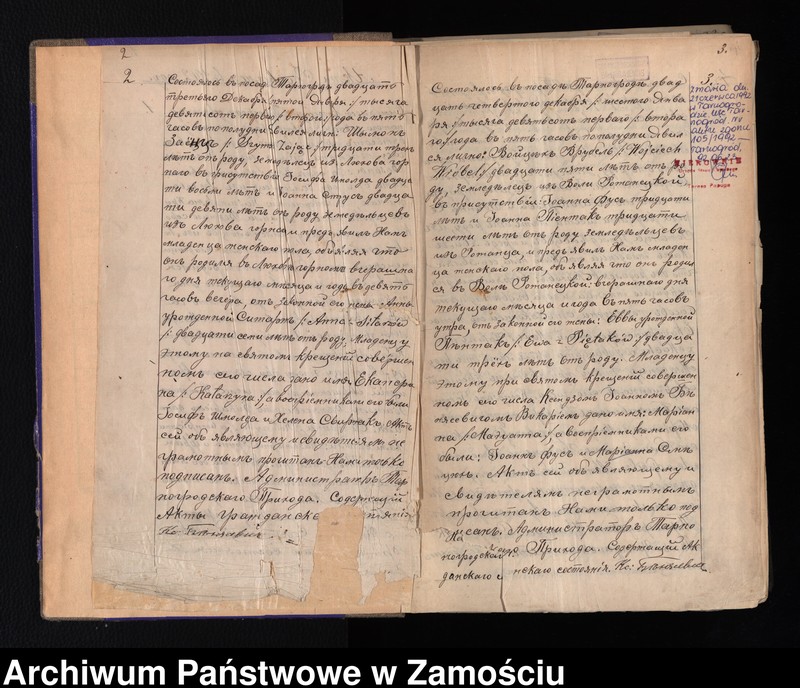 2
2
Состоялось въ посадѣ Тарноградѣ двадцать
третьяго Декабря /: пятаго Января :/ тысяча
девятьсотъ перваго /: втораго :/ года въ пять
часовъ пополудни. Явился лично: Шимонъ
Заёнцъ /: Szymon Zając :/ тридцати трехъ
лѣтъ отъ роду, земледѣлецъ изъ Люхова гор
наго въ присутствіи Іосифа Шмолда двадца
ти восьми лѣтъ и Іоанна Струсъ двадца
ти девяти лѣтъ отъ роду земледѣльцевъ
изъ Люхова горнаго и предъявилъ Намъ
младенца женскаго пола, объявляя что
онъ родился въ Люховѣ горномъ вчерашня
го дня текущаго мѣсяца и года въ девять
часовъ вечера, отъ законной его жены Анны
урожденной Ситаржъ /: Anna z Sitarzów
:/ двадцати семи лѣтъ отъ роду. Младенцу
этому на святомъ крещеніи совершен
номъ сего числа дано имя Екатери
на /: Katarzyna :/, а воспріемниками его были
Іосифъ Шмолда и Хелена Свиртакъ. Актъ
сей объявляющему и свидѣтелямъ не
грамотнымъ прочитанъ Нами только
подписанъ. Администраторъ Тар
ногродскаго Прихода. Содержащій
Акты гражданска
3.
3.
Состоялось въ посадѣ Тарноградѣ двад
цать четвертаго декабря /: шестаго Янва
ря :/ тысяча девятьсотъ перваго /: втора
го :/ года въ пять часовъ пополудни. Явил
ся лично: Войцѣхъ Врубель /: Wojciech
Wróbel :/ двадцати пяти лѣтъ отъ ро
ду, земледѣлецъ изъ Воли Ротанецкой
въ присутствіи: Іоанна Фусъ тридцати
лѣтъ и Іоанна Пентакъ тридцати
шести лѣтъ отъ роду земледѣльцевъ
изъ Ротанца, и предъявилъ Намъ младен
ца женскаго пола, объявляя что онъ родил
ся въ Волѣ Ротанецкой: вчерашняго дня
текущаго мѣсяца и года въ пять часовъ
утра отъ законной его жены: Еввы урожденной
Пентакъ /: Ewa z Piętaków :/ двадца
ти трёхъ лѣтъ отъ роду. Младенцу
этому при святомъ крещеніи совершен
номъ сего числа Ксендзомъ Іоанномъ
Викаріемъ дано имя: Маріан
на /: Maryanna :/, а воспріемниками его
были: Іоаннъ Фусъ и Маріанна
Актъ сей объявляющему и
свидѣтелямъ неграмотнымъ
прочитанъ Нами только под
писанъ. Администраторъ Тарно
погродскаго Прихода. Содержащій Ак
данскаго состоянія. Кс:
zmarła dn.
21 czerwca 1992
w Tarnogro-
105/1992
Tarnogród,
Archiwum Państwowe w Zamościu